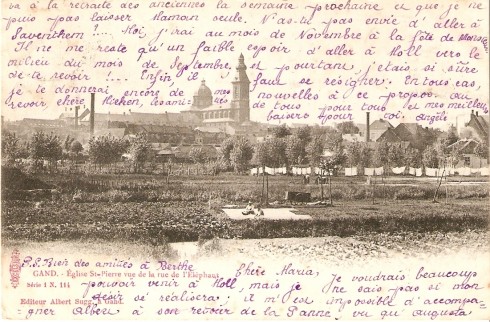 va à la retraite des anciennes la semaine prochaine et que je ne
puis pas laisser Maman seule. N'as-tu pas envie d'aller à
Saventhem !... Moi, j'irai au mois de Novembre à la fête de
Il ne me reste qu'un faible espoir d'aller à Moll vers le
milieu du mois de Septembre, et pourtant, j'étais si sûre
de te revoir !... Enfin il faut se résigner. En tout cas,
je te donnerai encore de nouvelles à ce propos. Au
revoir, chère les amitiés de tous pour tous et mes meilleurs
baisers pour toi. Angèle
P.S. Bien des amitiés à Berthe
GAND. - Église St-Pierre vue de la rue de l'Éléphant
Série 1 N. 114
Editeur Albert Sugg, à Gand.
Chère Maria, Je voudrais beaucoup
pouvoir venir à Moll, mais je ne sais pas si mon
désir se réalisera; il m'est impossible d'accompa-
gner Albert à son retour de La Panne, vu qu'Augusta